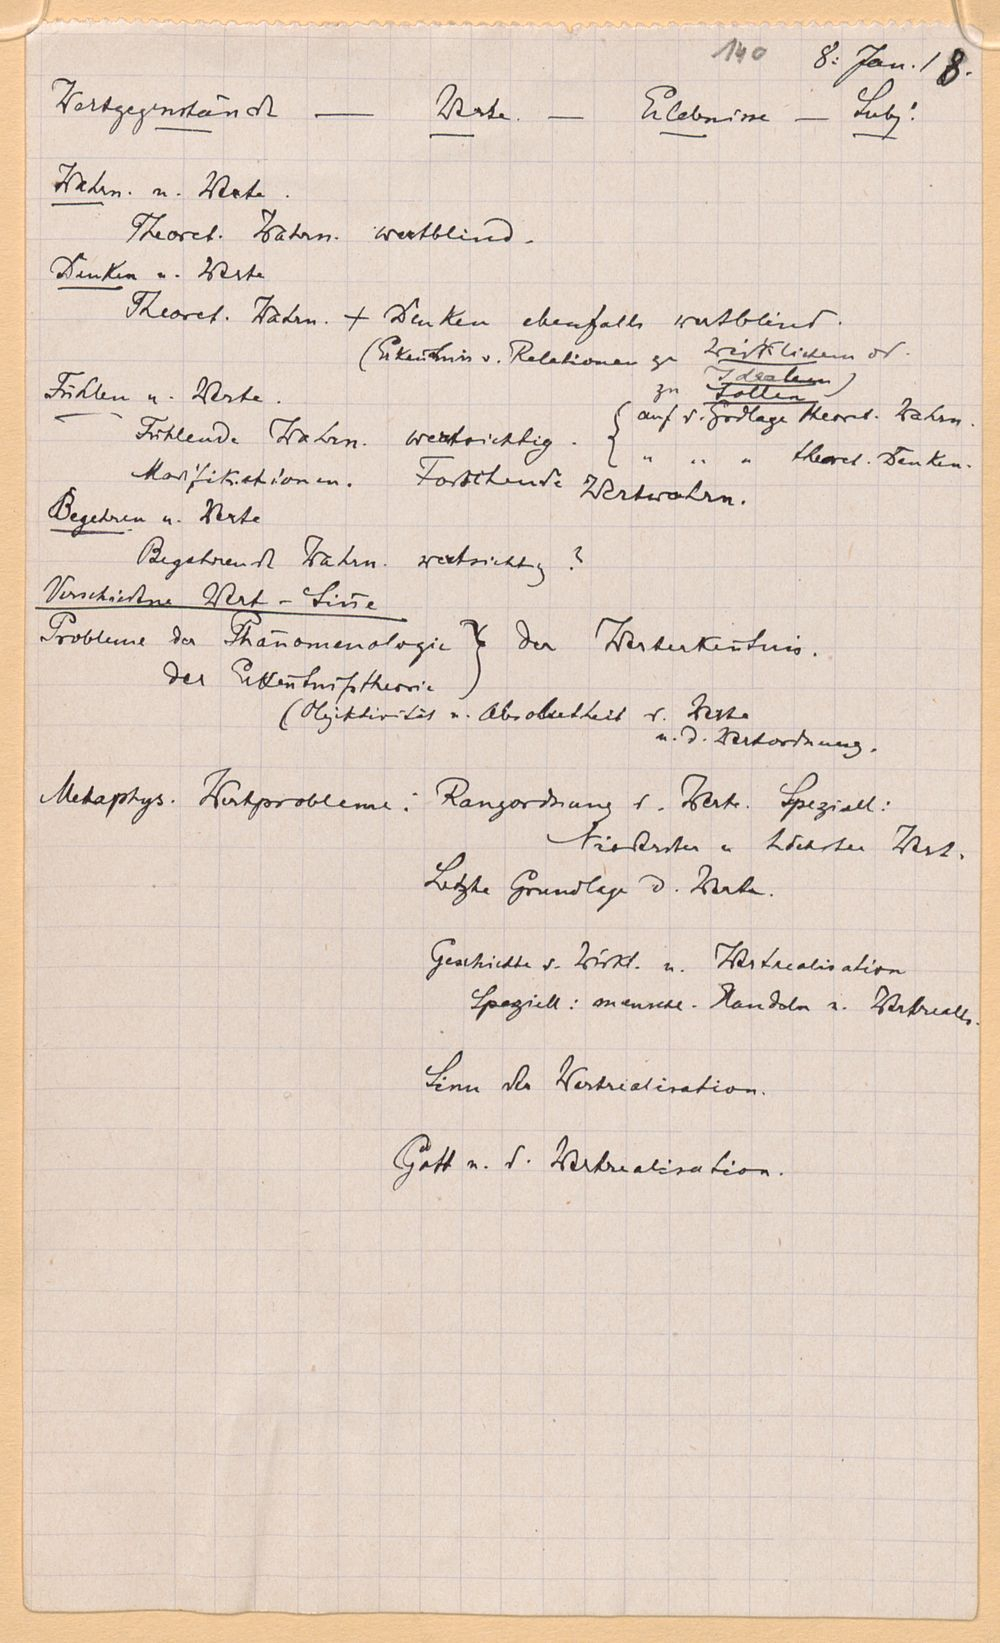 140 8. Jan. 18.
Wertgegenstände — Werte. — Erlebnisse — Subj!
Wahrn. u. Werte.
Theoret. Wahrn. wertblind.
Denken u. Werte
Theoret. Wahrn. + Denken ebenfalls wertblind.
(Erkenntnis v. Relationen zu Wirklichem od.
Idealem)
zu Sollen
Fühlen u. Werte.
auf d. Grdlage theoret. Wahrn.
Fühlende Wahrn. wertsichtig. { " " " theoret. Denken.
Modifikationen. Wertwahrn.
Begehren u. Werte
Begehrende Wahrn. wertsichtig?
Verschiedne Wert-Sinne
Probleme der Phänomenologie } der Werterkenntnis.
der Erkenntnistheorie
(Objektivität u. Absolutheit d. Werte
u. d. Wertordnung.
Metaphys. Wertprobleme: Rangordnung d. Werte. Speziell:
Niederster u. höchster Wert.
Letzte Grundlage d. Werte.
Geschichte d. Wirkl. u. Wertrealisation
Speziell: menschl. Handeln u. Wertrealis.
Sinn der Wertrealisation.
Gott u. d. Wertrealisation.